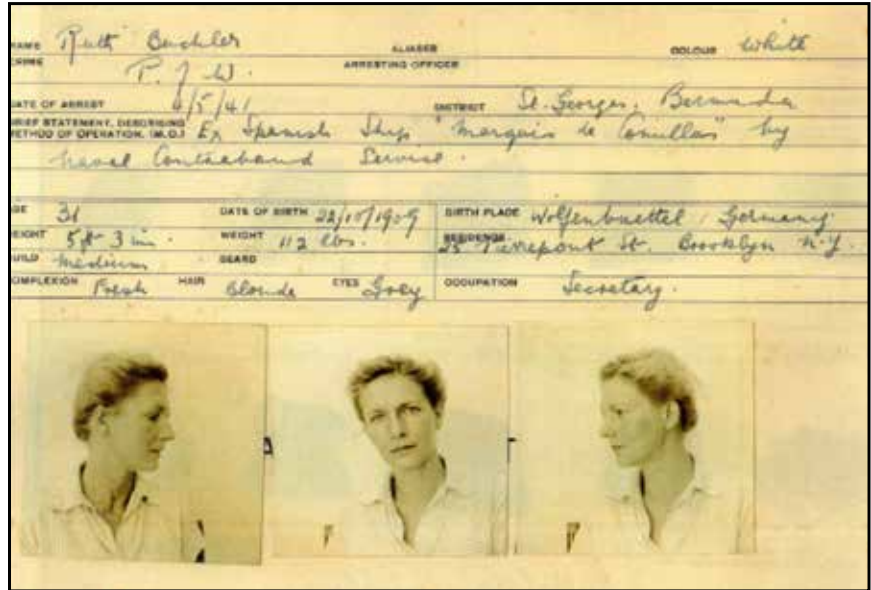 NAME Ruth Buchler ALIASES COLOUR White
CRIME P. J. W. ARRESTING OFFICER
DATE OF ARREST 4/5/41 DISTRICT St. Georges, Bermuda
BRIEF STATEMENT, DESCRIBING Ex Spanish Ship "Marquis de Comillas" by
METHOD OF OPERATION. (M.O.)
Naval Contraband Service.
AGE 31 DATE OF BIRTH 22/10/1909 BIRTH PLACE Wolfenbuettel, Germany
HEIGHT 5 ft 3 in. WEIGHT 112 lbs. RESIDENCE 25 Pierrepont St. Brooklyn N.Y.
BUILD Medium BEARD
COMPLEXION Fresh HAIR Blonde EYES Grey OCCUPATION Secretary.